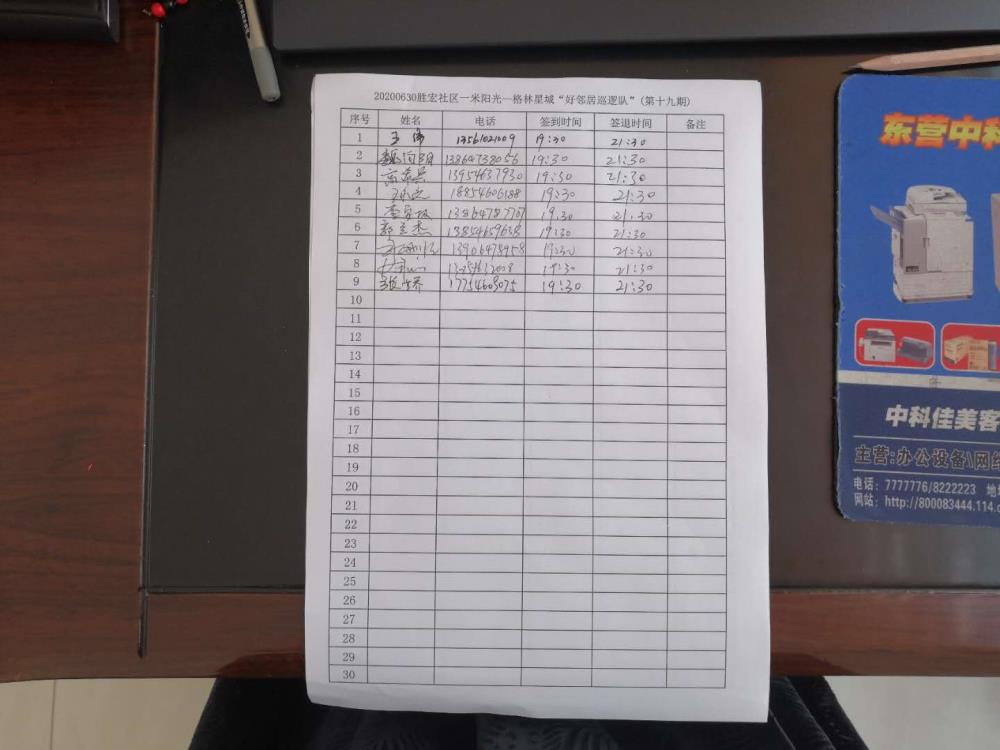 20200630胜宏社区一米阳光—格林星城“好邻居巡逻队”(第十九期)
序号 姓名 电话 签到时间 签退时间 备注
1 王 13561021009 19:30 21:30
2 13864738056 19:30 21:30
3 13954637930 19:30 21:30
4 18854606188 19:30 21:30
5 19:30 21:30
6 杰 13854659638 19:30 21:30
7 13906478958 19:30 21:30
8 19:30 21:30
9 17754603075 19:30 21:30
10
11
12
13
14
15
16
17
18
19
20
21
22
23
24
25
26
27
28
29
30
东营中科
中科佳美客
主营:办公设备\网络
电话: 7777776/8222223 地
网站: http://800083444.114.